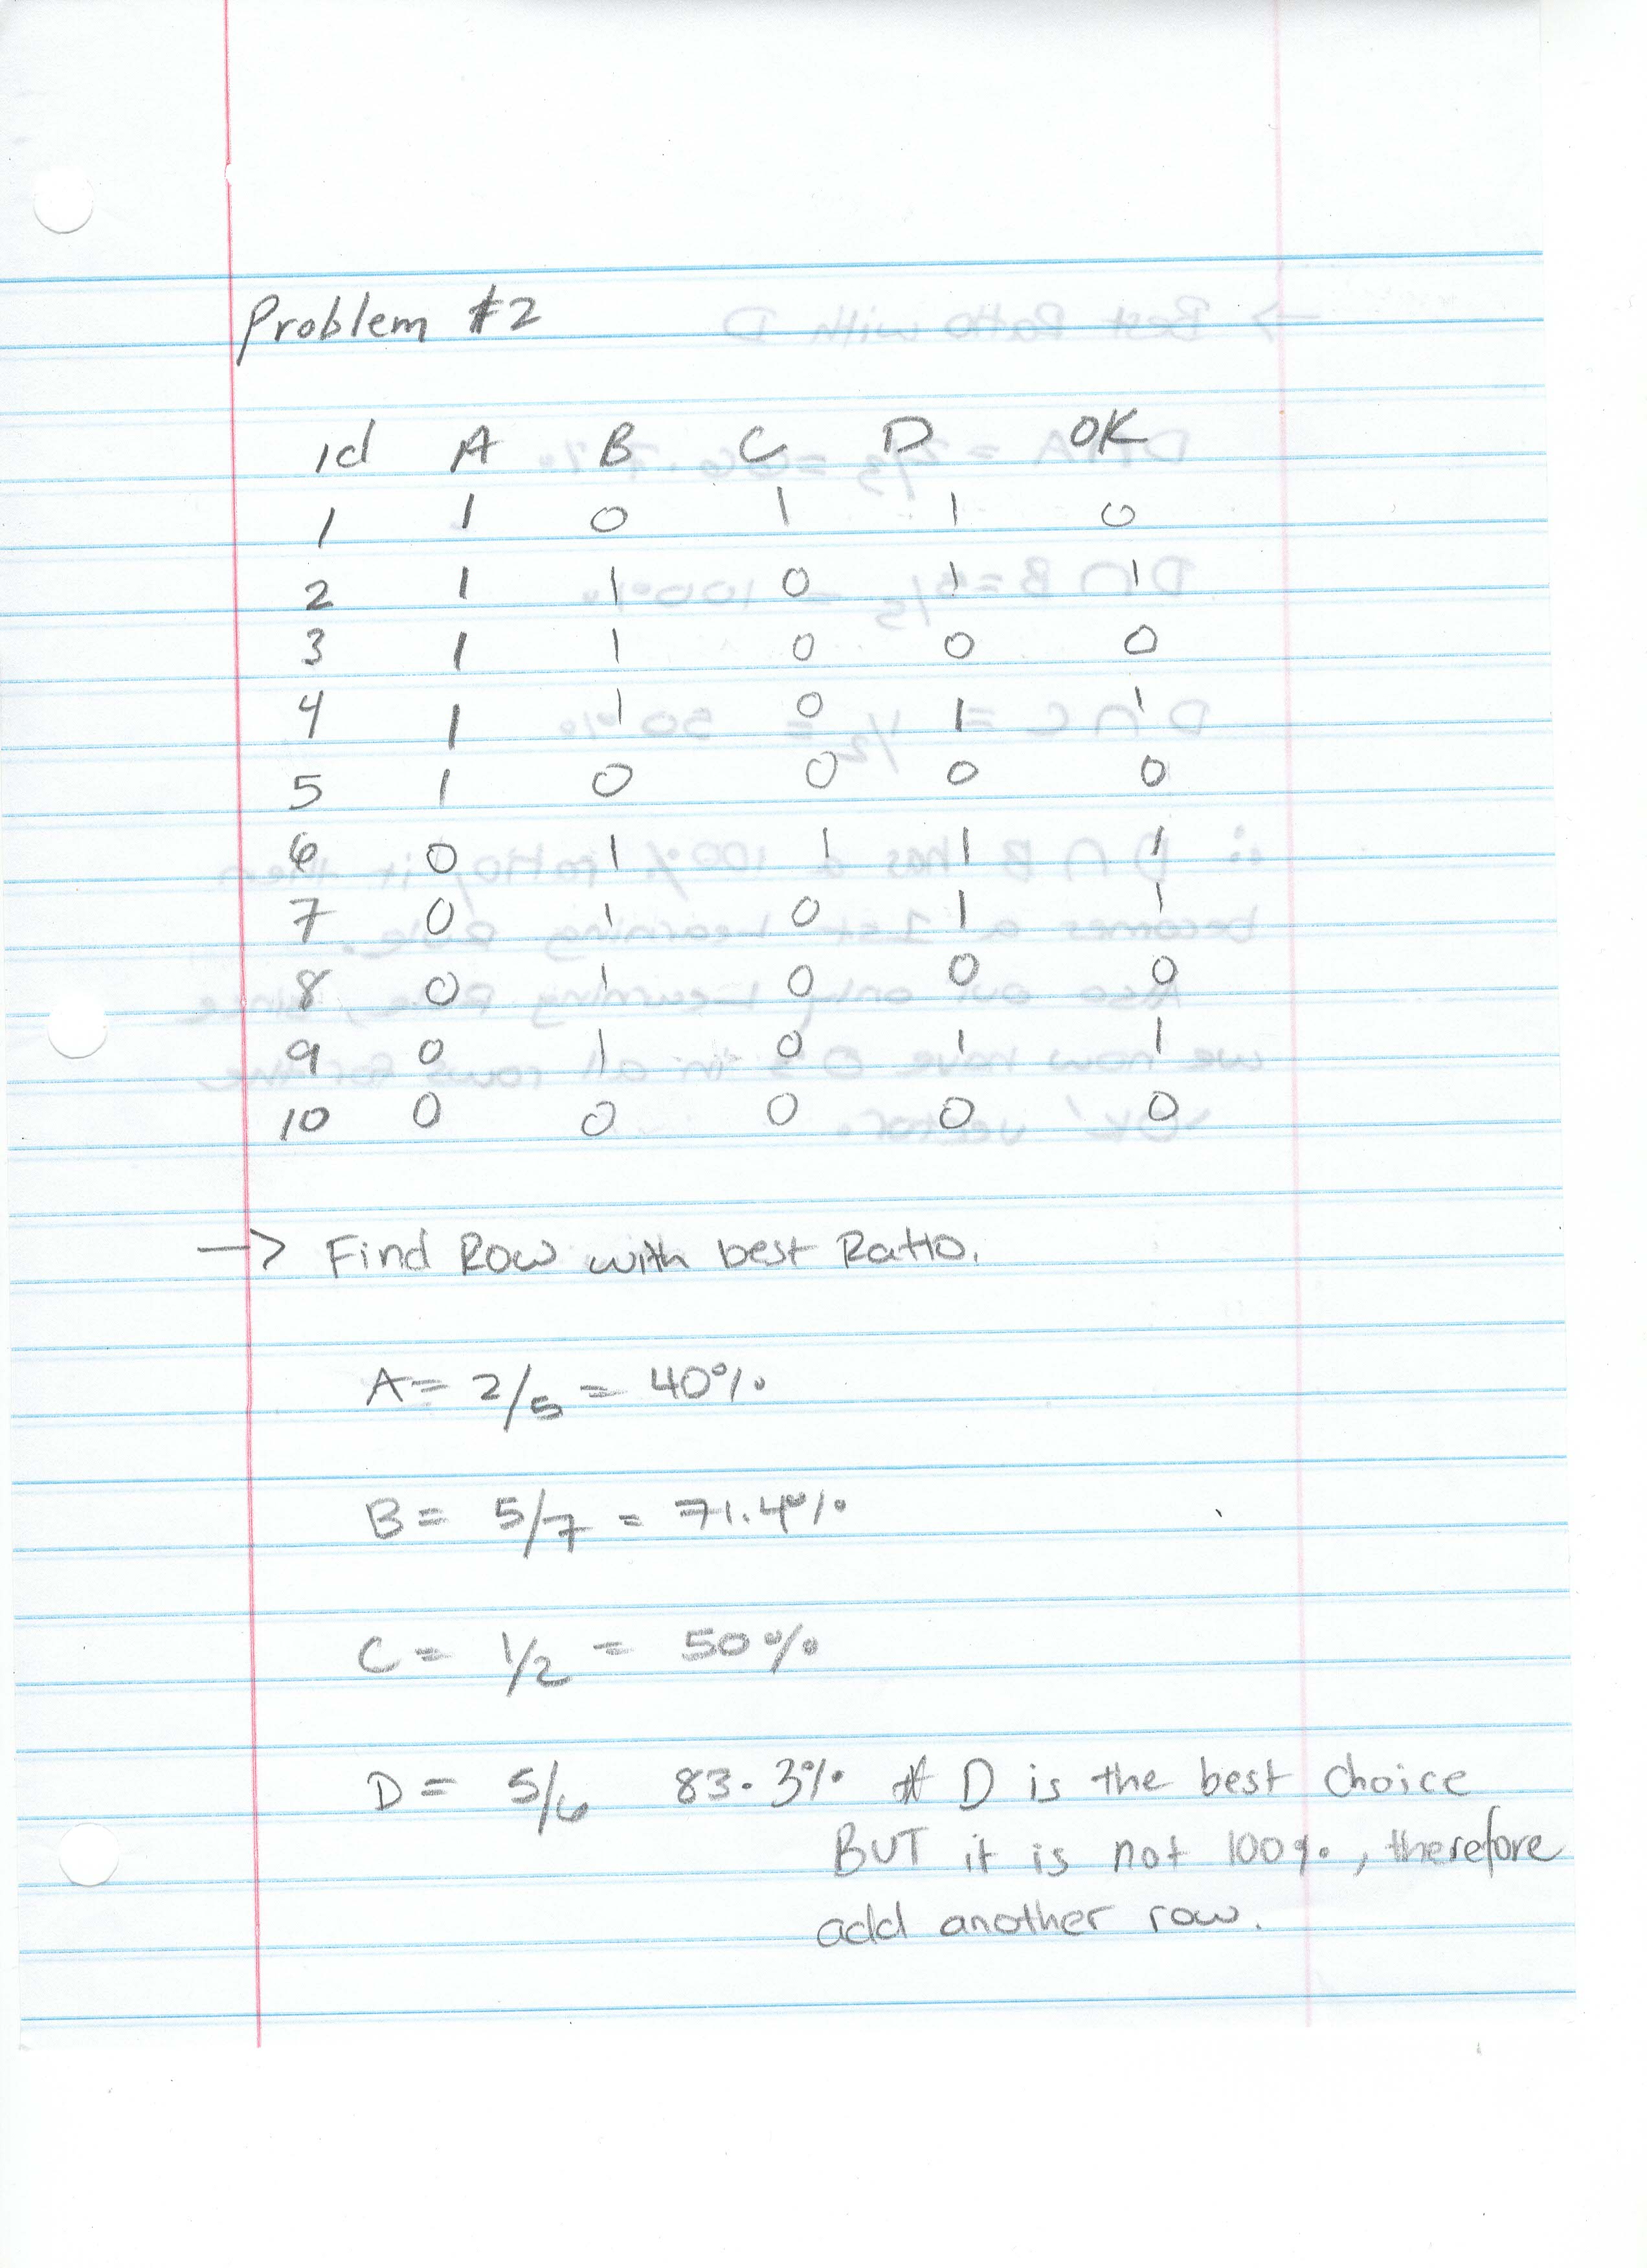 Problem #2
id A B C D OK
1 1 0 1 1 0
2 1 1 0 1 1
3 1 1 0 0 0
4 1 1 0 1 1
5 1 0 0 0 0
6 0 1 1 1 1
7 0 1 0 1 1
8 0 1 0 0 0
9 0 1 0 1 1
10 0 0 0 0 0
-> Find Row with best Ratio.
A = 2/5 = 40%
B = 5/7 = 71.4%
C = 1/2 = 50%
D = 5/6 83.3% # D is the best choice
BUT it is not 100%, therefore
add another row.